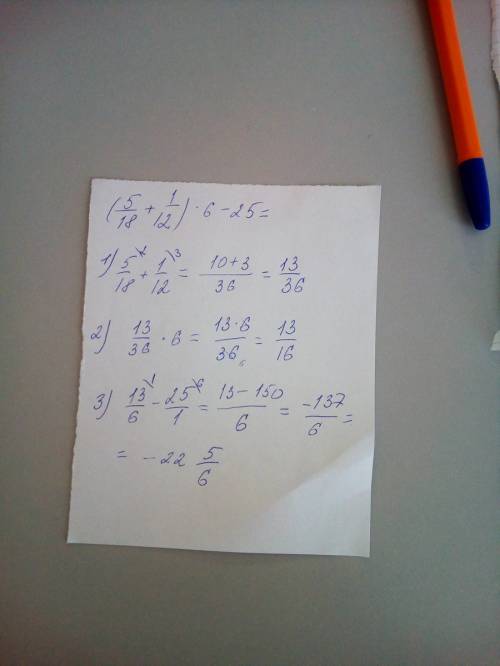 (5/18 + 1/12) · 6 − 25 =
1) 5/18 \² + 1/12 \³ = 10+3/36 = 13/36
2) 13/36 · 6 = 13·6/36₆ = 13/16
3) 13/6 \¹ − 25/1 \⁶ = 13−150/6 = −137/6 =
= −22 5/6